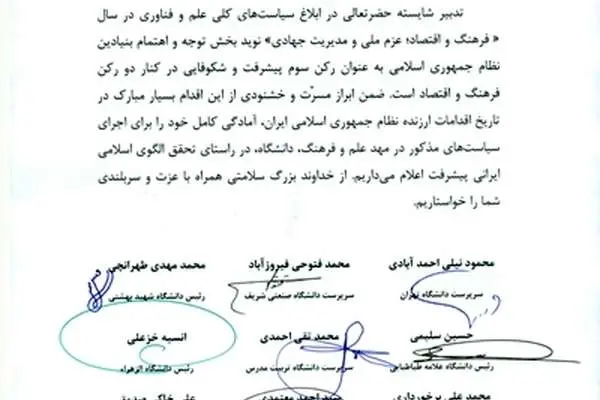 تدبیر شایسته حضرتعالی در ابلاغ سیاست‌های کلی علم و فناوری در سال
« فرهنگ و اقتصاد؛ عزم ملی و مدیریت جهادی» نوید بخش توجه و اهتمام بنیادین
نظام جمهوری اسلامی به عنوان رکن سوم پیشرفت و شکوفایی در کنار دو رکن
فرهنگ و اقتصاد است. ضمن ابراز مسرّت و خشنودی از این اقدام بسیار مبارک در
تاریخ اقدامات ارزنده نظام جمهوری اسلامی ایران، آمادگی کامل خود را برای اجرای
سیاست‌های مذکور در مهد علم و فرهنگ، دانشگاه، در راستای تحقق الگوی اسلامی
ایرانی پیشرفت اعلام می‌داریم. از خداوند بزرگ سلامتی همراه با عزت و سربلندی
شما را خواستاریم.
محمود نیلی احمد آبادی محمد فتوحی فیروزآباد محمد مهدی طهرانچی
سرپرست دانشگاه تهران سرپرست دانشگاه صنعتی شریف رئیس دانشگاه شهید بهشتی
حسین سلیمی محمد تقی احمدی انسیه خزعلی
رئیس دانشگاه علامه طباطبائی سرپرست دانشگاه تربیت مدرس رئیس دانشگاه الزهراء
محمد علی برخورداری سید احمد معتمدی علی خاکی صدیق